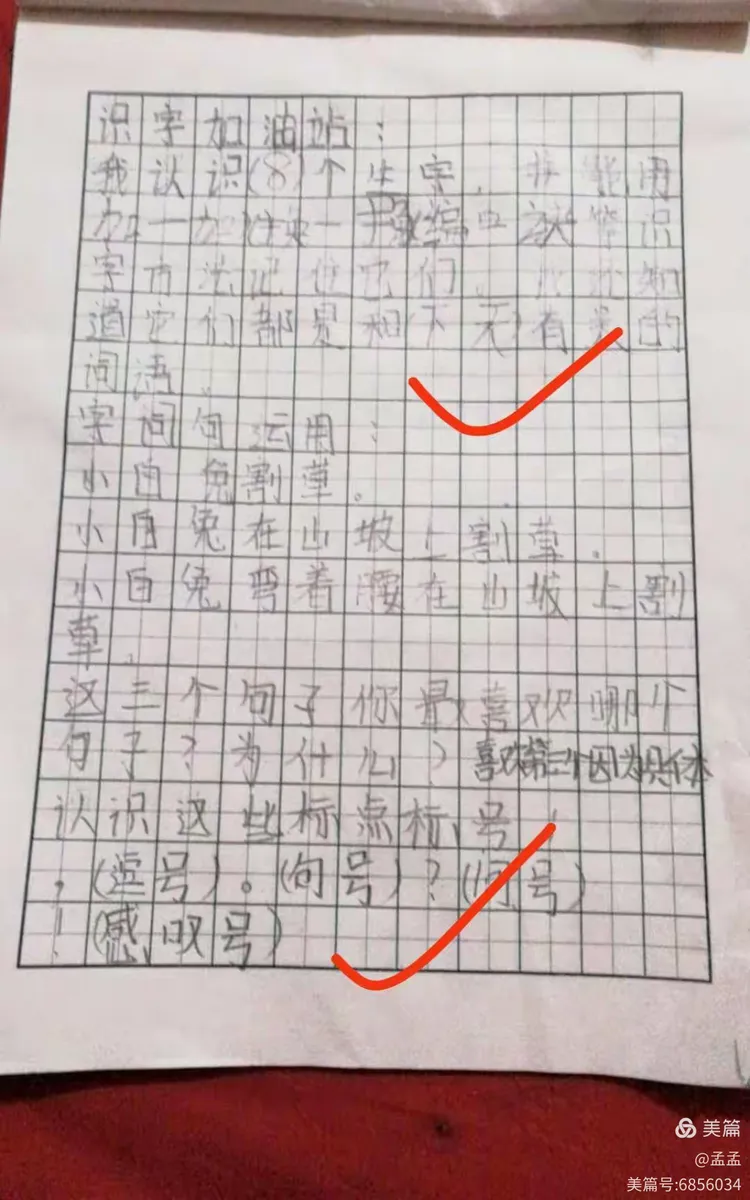 识字加油站：
我认识(8)个生字，并能用
加一加 一 编口诀等识
字方法记住它们。 还知
道它们都是和下天有关的
词语。
字词句运用：
小白兔割草。
小白兔在山坡上割草。
小白兔弯着腰在山坡上割
草。
这三个句子你最喜欢哪个
句子？为什么？喜欢第三个因为具体
认识这些标点标号
，(逗号)。(句号)？(问号)
！(感叹号)
美篇
@孟孟
美篇号:6856034